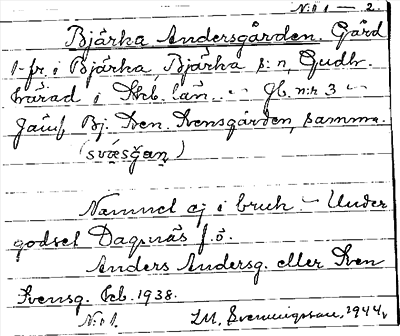 N:o 1 — 2.
Bjärka Andersgården. Gård
1 fr. i Bjärka, Bjärka s:n, Gudh.
härad i Skb. län. – Jb. n:r 3 –
Jämf. Bj. Sven Svensgården, samma.
(svæsgan)
Namnet ej i bruk. – Under
godset Dagsnäs f. ö.
Anders Andersg. eller Sven
Svensg. Eeb. 1938.
N:o 1. I.M. Svenningsson, 1944.